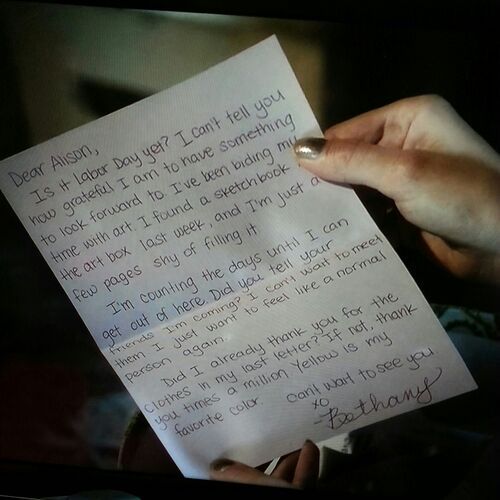 Dear Alison,
Is it Labor Day yet? I can't tell you
how grateful I am to have something
to look forward to. I've been biding my
time with art. I found a sketchbook
the art box last week, and I'm just a
few pages shy of filling it
I'm counting the days until I can
get out of here. Did you tell your
friends I'm coming? I can't wait to meet
them I just want to feel like a normal
person again.
Did I already thank you for the
clothes in my last letter? If not, thank
you times a million Yellow is my
favorite color
Can't wait to see you
xo
-Bethany